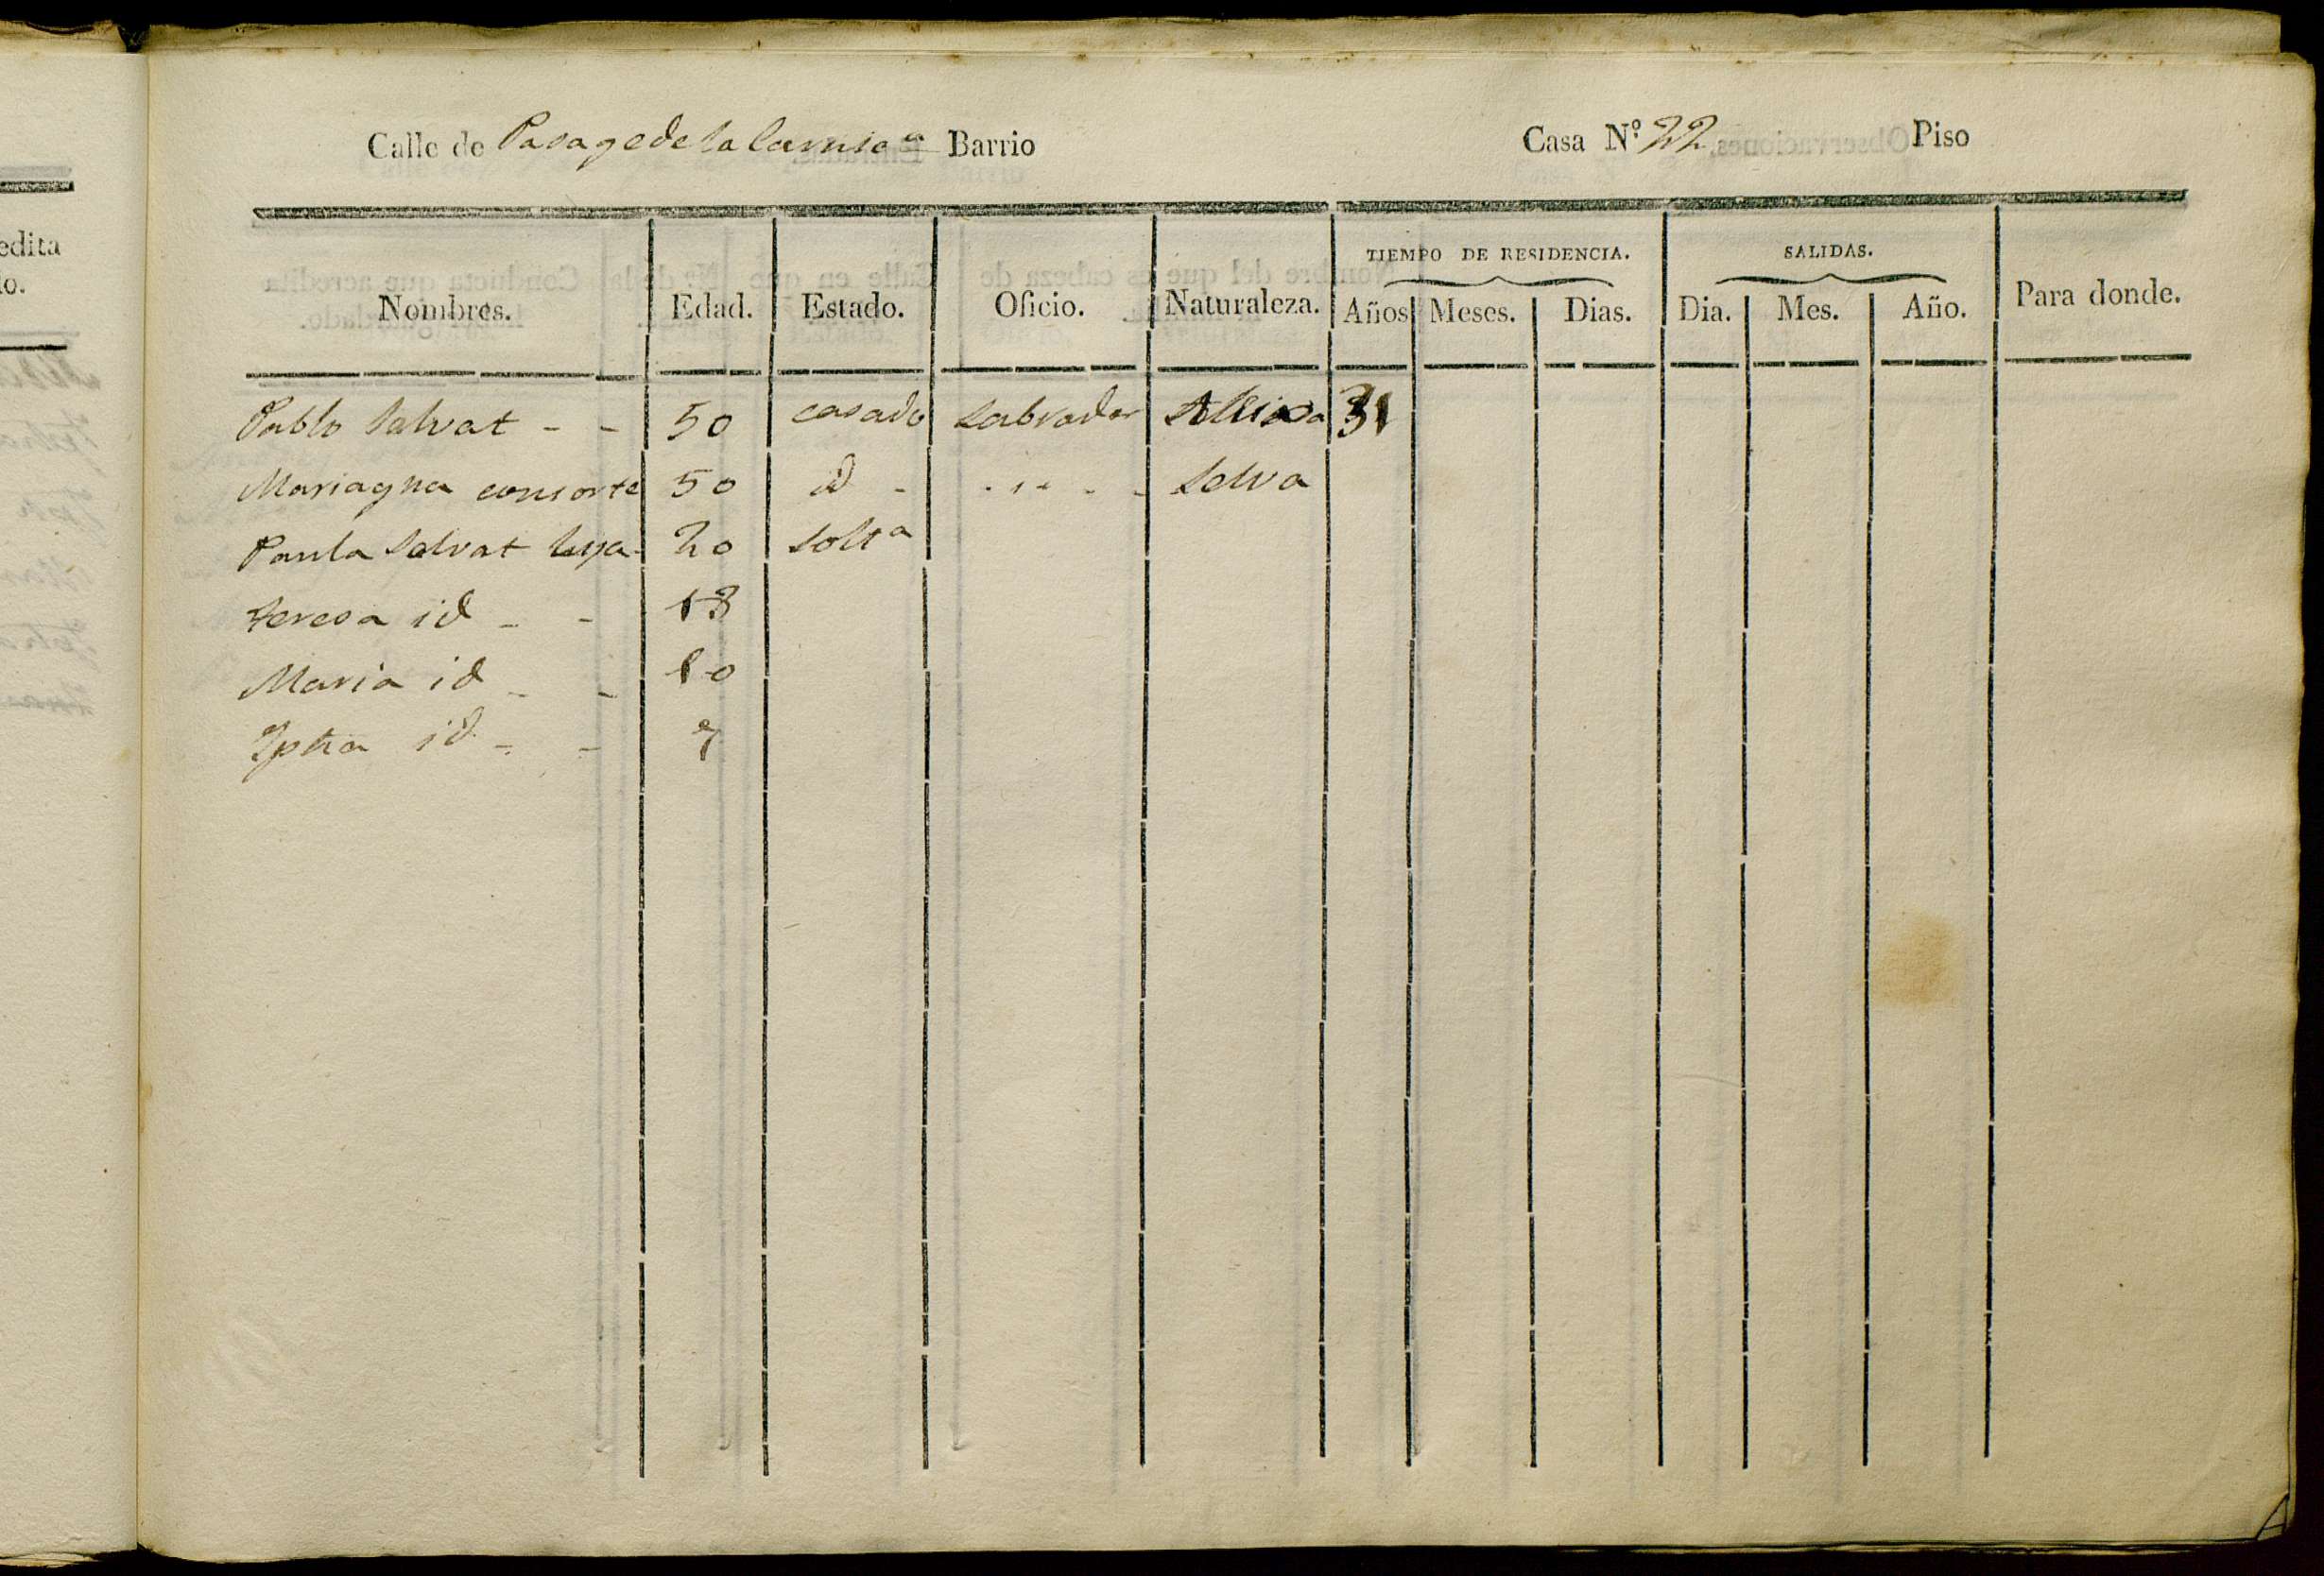 edita
lo.
Calle de Pasage de la Barrio Casa N.º 22 Piso
TIEMPO DE RESIDENCIA. SALIDAS.
Nombres. Edad. Estado. Oficio. Naturaleza. Años Meses. Dias. Dia. Mes. Año. Para donde.
Pablo Salvat - - 50 casado Labrador 31
Mariagna consorte 50 id - - - - Selva
Paula Salvat hija 20 solta
teresa id - - 18
Maria id - - 10
id - - 7